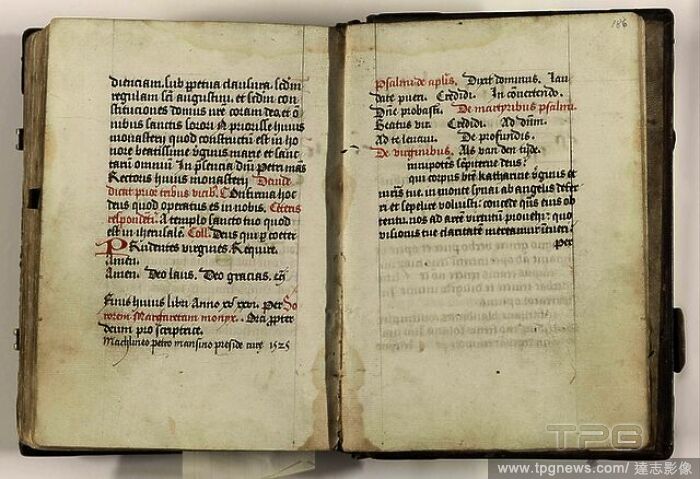 dienciam, sub ꝑpetua clausura, scd̄m
regulam scī augustini, et scd̄m con
stituciones domus nr̄e coram deo, et o
mnibus sanctis soror. N priorisse huius
monasterii quod constructū est in ho
nore beatissime v̄ginis marie et sanc
tarū omniū In p̄sencia dn̄i petri man̄s
Rectoris huiꝰ monasterii Deinde
dicit prior tribus vicib. Confirma hoc
deus quod operatus es in nobis, Ceteris
respondetꝭ. A templo sancto tuo quod
est in iherusalē. Coll. Deus qui ꝑ coeter
Prudentes virgines, Require.
Amen.
Amen. Deo laus. Deo gracias.
Finis huius libri Anno xvc xxv. Per So
rorem Margaretam monyx. Orci ꝓpter
deum pro scriptrice.
Machlineo petro mansino preside cure 1525
186
Psalmi de aplis. Dixit dominus. Lau
date pueri. Credidi. In convertendo.
Dn̄e probasti. De martyribus psalmi.
Beatus vir. Credidi. Ad dn̄m.
Ad te levavi. De profundis.
De virginibus. Als van den tide.
mnipotēs sēpiterne deus?
qui corpus btē katharine v̄ginis et
mr̄is tue, in monte synai ab angelis defer
ri et sepelire voluisti: concede qs̄ eius ob
tentu, nos ad arcē virtutū provehi: quo
visionis tue claritatē mereamur ītueri?
Per
TPG
www.tpgnews.com/ 達志影像